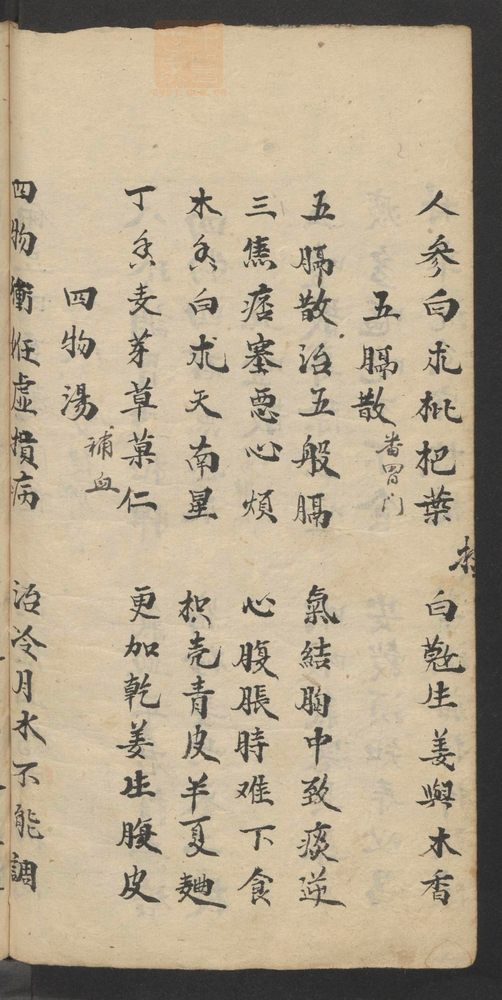 人參白朮枇杷葉 白蔻生姜與木香
五膈散 番胃门
五膈散治五般膈 氣結胸中致痰逆
三焦痞塞悪心煩 心腹脹時难下食
木香白朮天南星 枳壳青皮半夏麯
丁香麦芽草菓仁 更加乾姜生腹皮
四物湯 補血
四物衝任虚損病 治冷月水不能調